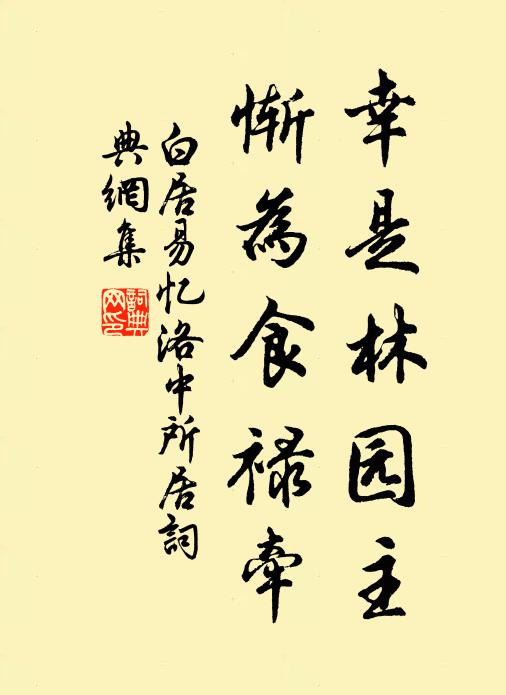 幸是林园主
惭为食禄牵
白居易忆洛中所居詞
典網集
詞典
网印